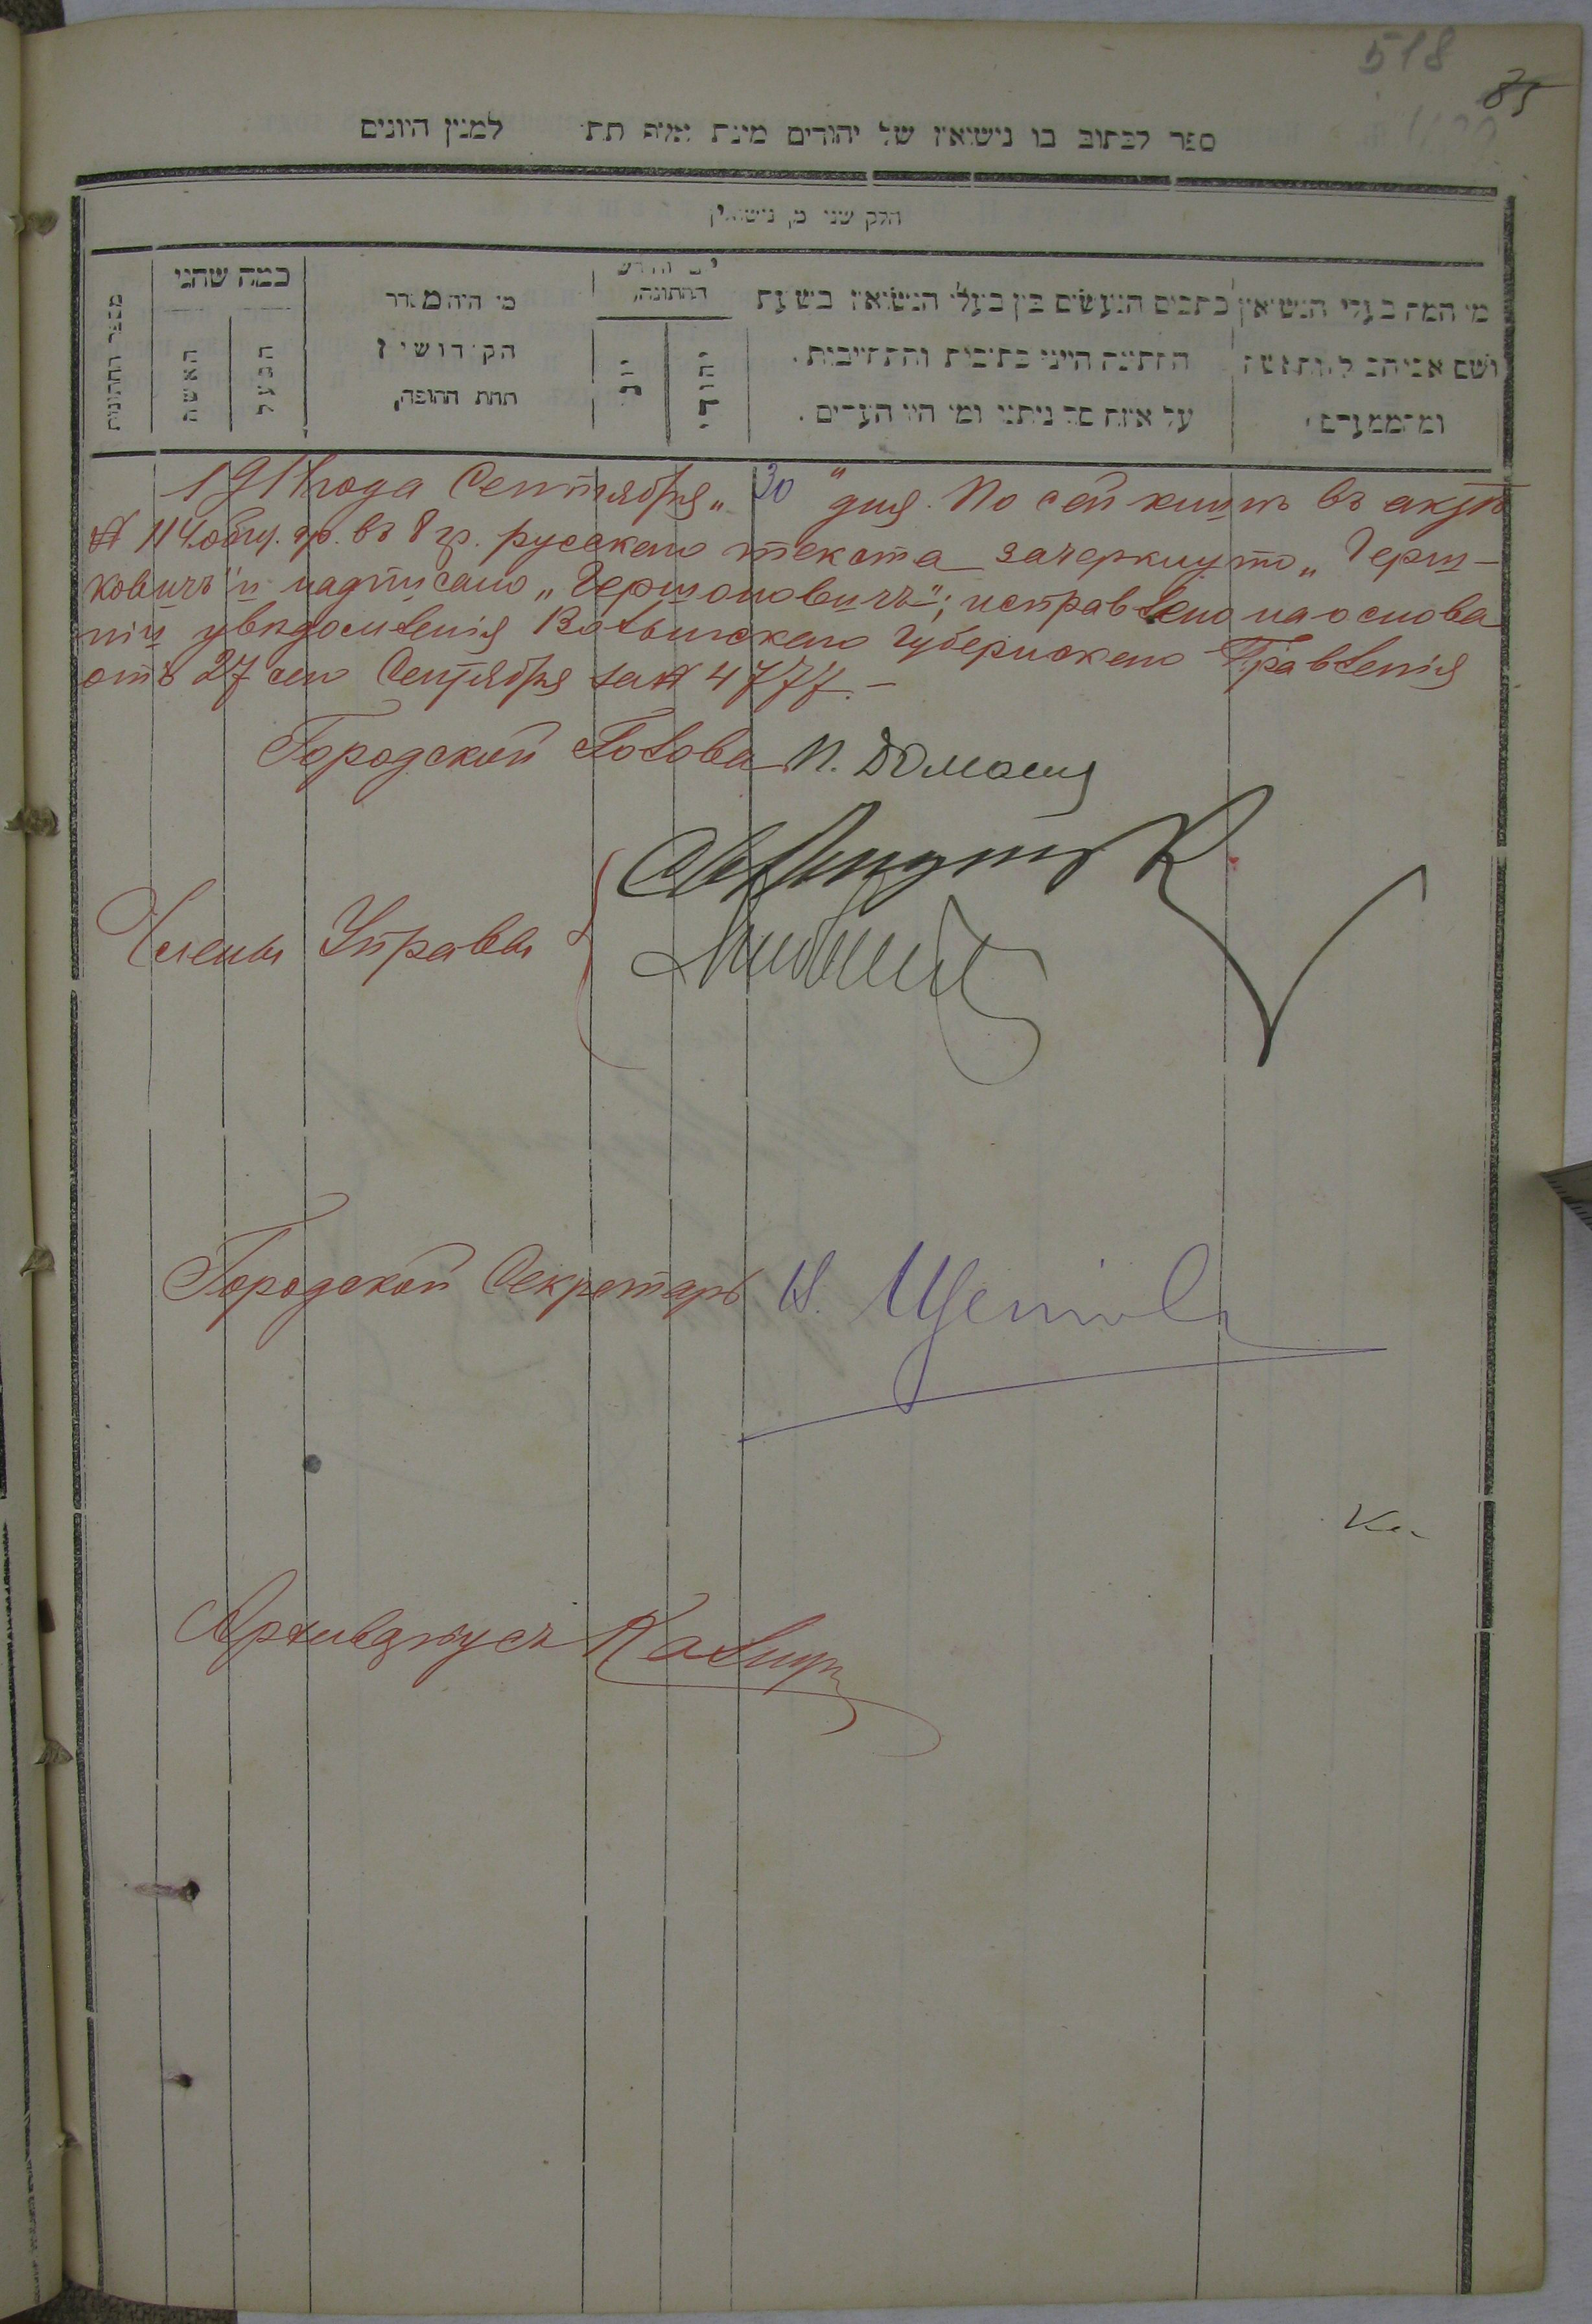 518
85
ספר לכתוב בו נישואין של יהודים מינת אלף תת למנין היונים
חלק שני מן נישואין
מי המה בעלי הנישואין
ושם אביהם
כתבים הנעשים בין בעלי הנישואין בשעת
החתונה היינו כתובות והתחייבות.
על איזה סך ניתנו ומי היו העדים.
יום וחדש
החתונה
יהודי
יוני
מי היה מסדר
הקידושין
תחת החופה
כמה שהני
הבעל
האשה
מספר החתונות
1911 года Сентября „30" дня. По сей книгѣ въ актѣ
№ 114 общ. гр. въ 8 гр. русскаго текста зачеркнуто „Герш-
ковичъ" и надписано „Гершоновичъ"; исправлено на основа
ніи увѣдомленія Волынскаго Губернскаго Правленія
отъ 27 сего Сентября за № 4777.–
Городской Голова П.
Члены Управы
Городской Секретарь
Архиваріусъ